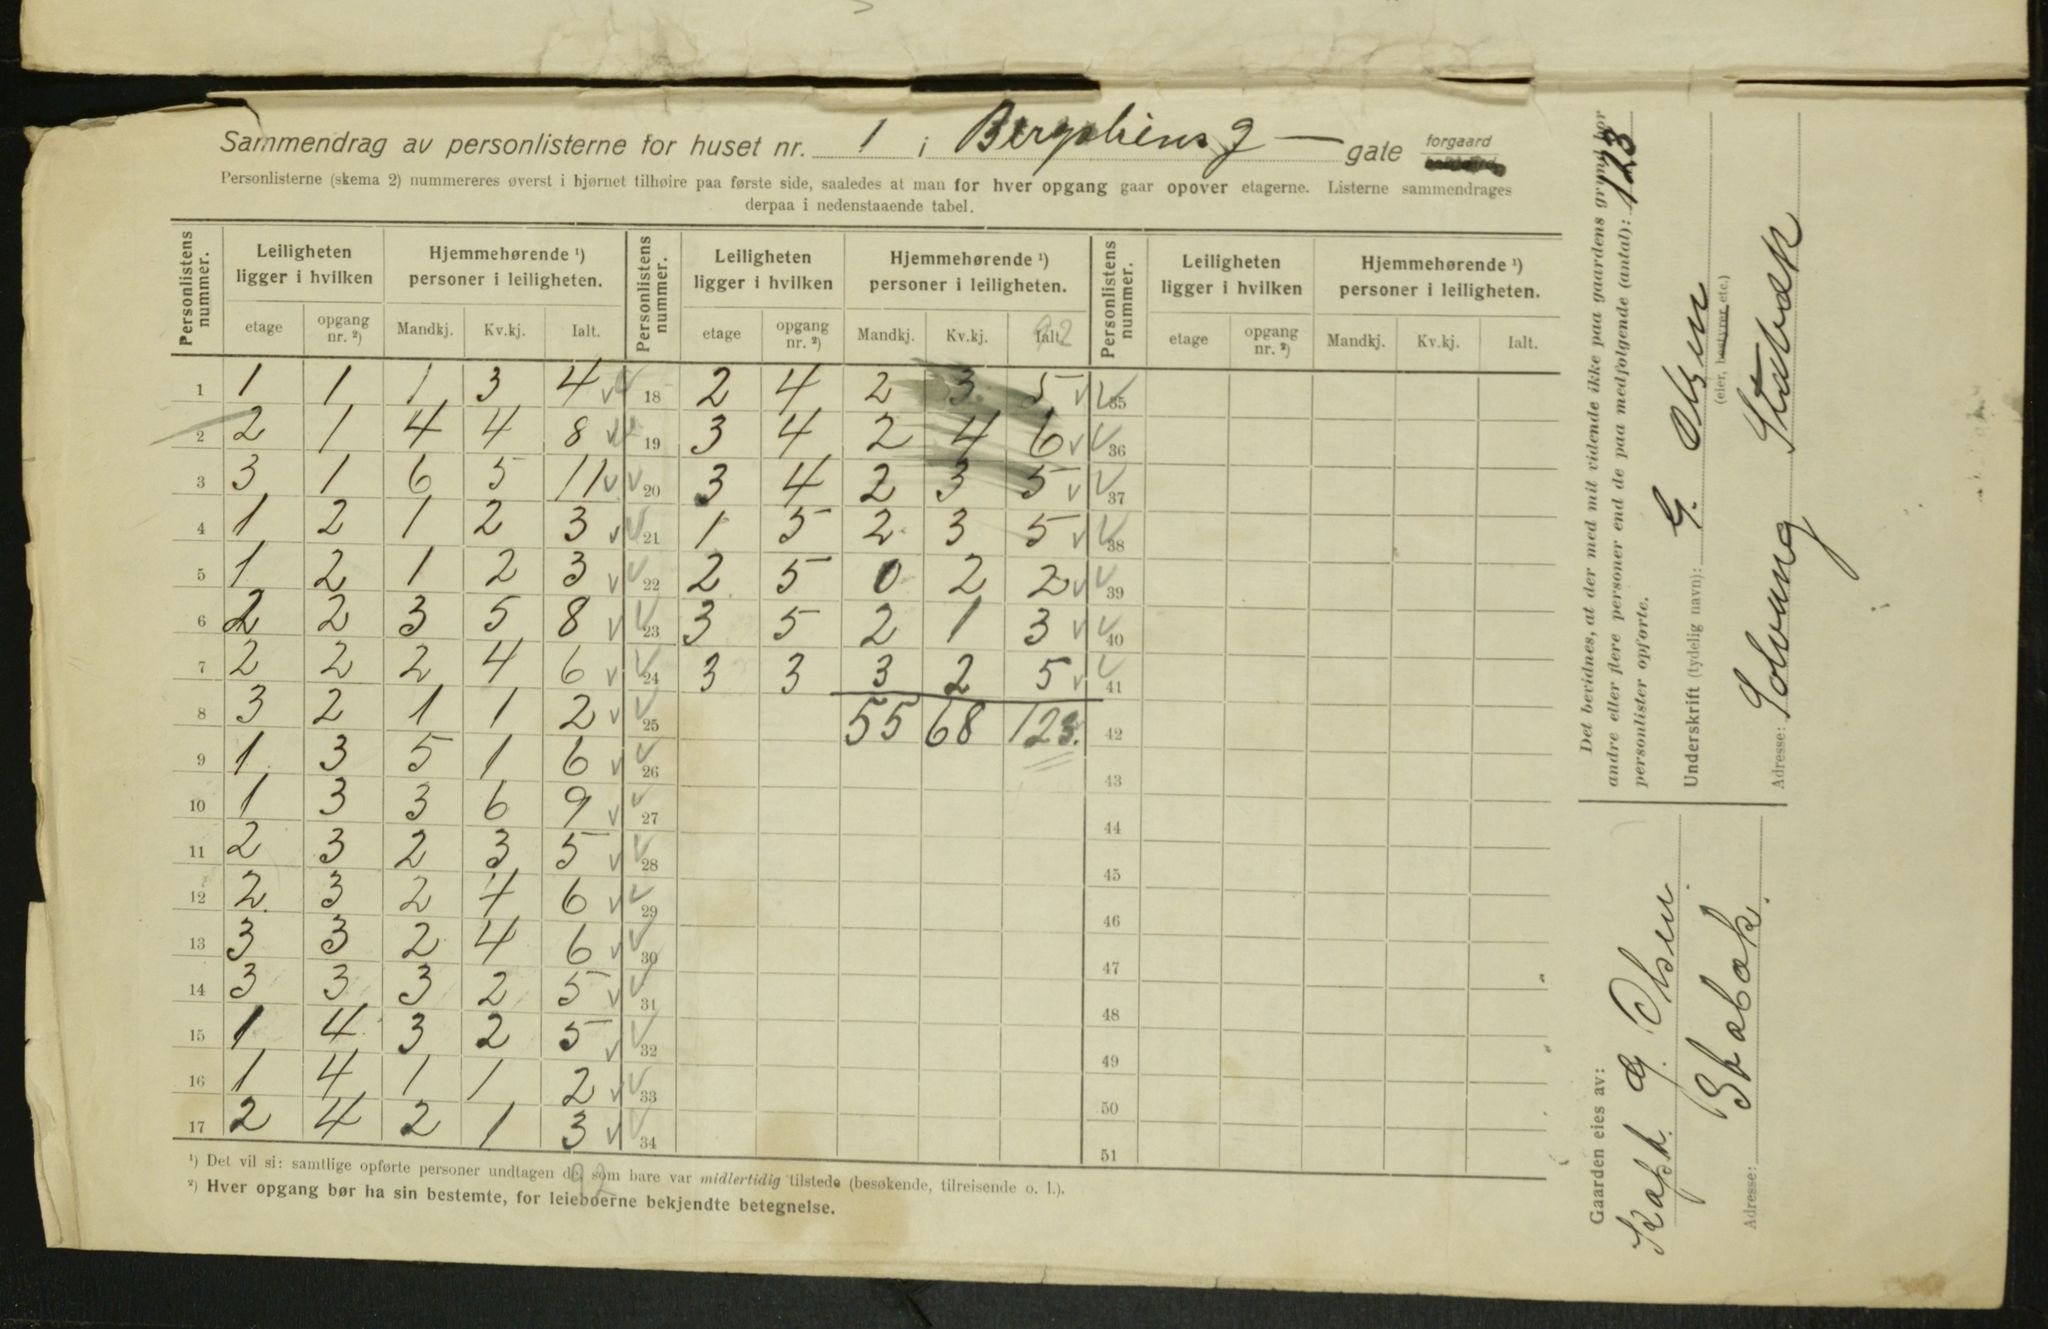 Sammendrag av personlisterne for huset nr. 1 i Bergsliens g — gate forgaard
Personlisterne (skema 2) nummereres øverst i hjørnet tilhøire paa første side, saaledes at man for hver opgang gaar opover etagerne. Listerne sammendrages
derpaa i nedenstaaende tabel.
Personlistens nummer. Leiligheten ligger i hvilken Hjemmehørende ¹) personer i leiligheten. Personlistens nummer. Leiligheten ligger i hvilken Hjemmehørende ¹) personer i leiligheten. Personlistens nummer. Leiligheten ligger i hvilken Hjemmehørende ¹) personer i leiligheten.
etage opgang nr. ²) Mandkj. Kv.kj. Ialt. etage opgang nr. ²) Mandkj. Kv.kj. Ialt. 92 etage opgang nr. ²) Mandkj. Kv.kj. Ialt.
1 1 1 1 3 4 ✓ ✓ 18 2 4 2 3 5 ✓ ✓ 35
2 2 1 4 4 8 ✓ ✓ 19 3 4 2 4 6 ✓ ✓ 36
3 3 1 6 5 11 ✓ ✓ 20 3 4 2 3 5 ✓ ✓ 37
4 1 2 1 2 3 ✓ ✓ 21 1 5 2 3 5 ✓ ✓ 38
5 1 2 1 2 3 ✓ ✓ 22 2 5 0 2 2 ✓ ✓ 39
6 2 2 3 5 8 ✓ ✓ 23 3 5 2 1 3 ✓ ✓ 40
7 2 2 2 4 6 ✓ ✓ 24 3 3 3 2 5 ✓ ✓ 41
8 3 2 1 1 2 ✓ ✓ 25 55 68 123. 42
9 1 3 5 1 6 ✓ ✓ 26 43
10 1 3 3 6 9 ✓ ✓ 27 44
11 2 3 2 3 5 ✓ ✓ 28 45
12 2 3 2 4 6 ✓ ✓ 29 46
13 3 3 2 4 6 ✓ ✓ 30 47
14 3 3 3 2 5 ✓ ✓ 31 48
15 1 4 3 2 5 ✓ ✓ 32 49
16 1 4 1 1 2 ✓ ✓ 33 50
17 2 4 2 1 3 ✓ ✓ 34 51
92
¹) Det vil si: samtlige opførte personer undtagen de som bare var midlertidig tilstede (besøkende, tilreisende o. l.).
²) Hver opgang bør ha sin bestemte, for leieboerne bekjendte betegnelse.
Det bevidnes, at der med mit vidende ikke paa gaardens grund bor
andre eller flere personer end de paa medfølgende (antal): 123
personlister opførte.
Underskrift (tydelig navn): G. Olsen
(eier, bestyrer etc.)
Adresse: Solvung Stabæk
Gaarden eies av:
Kapt. G. Olsen
Adresse: Stabæk.